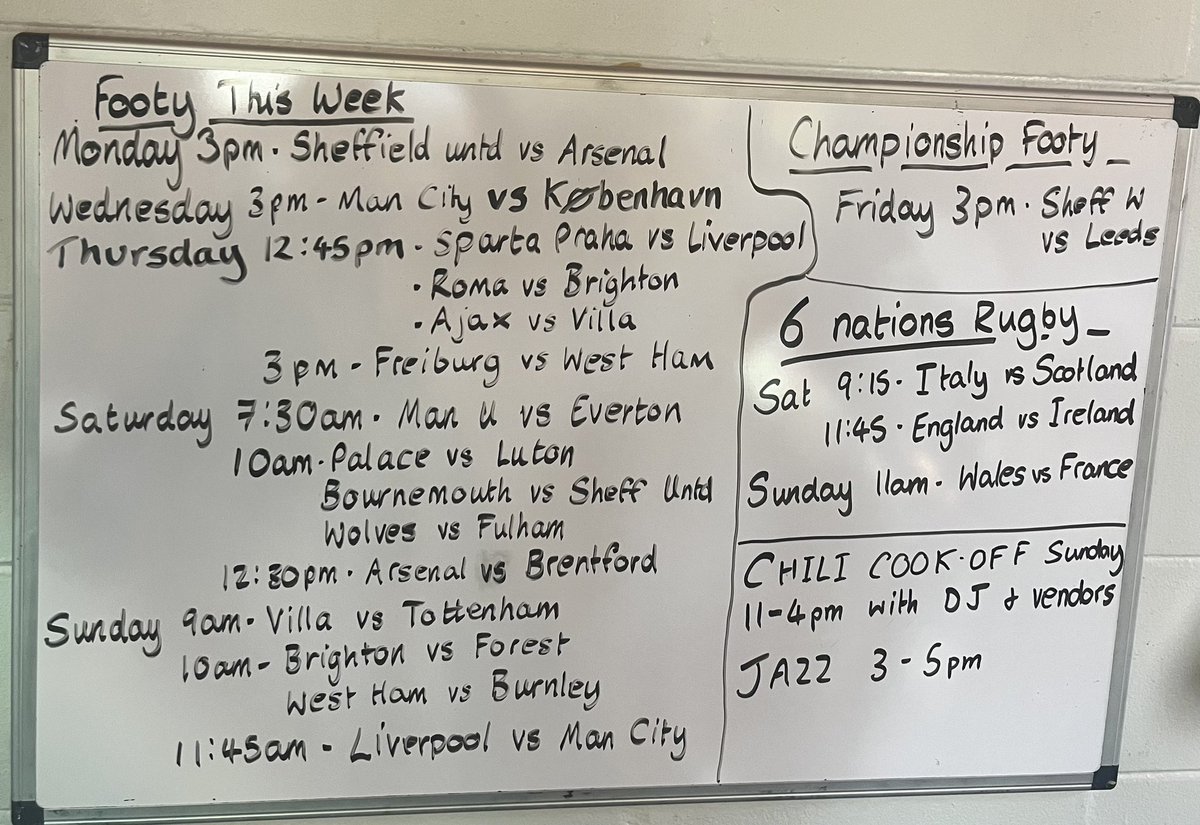 Footy This Week
Monday 3pm · Sheffield untd vs Arsenal
Wednesday 3pm - Man City vs København
Thursday 12:45pm · Sparta Praha vs Liverpool
· Roma vs Brighton
· Ajax vs Villa
3pm - Freiburg vs West Ham
Saturday 7:30am · Man U vs Everton
10am · Palace vs Luton
Bournemouth vs Sheff Untd
Wolves vs Fulham
12:30pm · Arsenal vs Brentford
Sunday 9am · Villa vs Tottenham
10am - Brighton vs Forest
West Ham vs Burnley
11:45am - Liverpool vs Man City
Championship Footy
Friday 3pm · Sheff W
vs Leeds
6 nations Rugby
Sat 9:15 · Italy vs Scotland
11:45 · England vs Ireland
Sunday 11am - Wales vs France
CHILI COOK-OFF Sunday
11-4pm with DJ & vendors
JAZZ 3-5pm